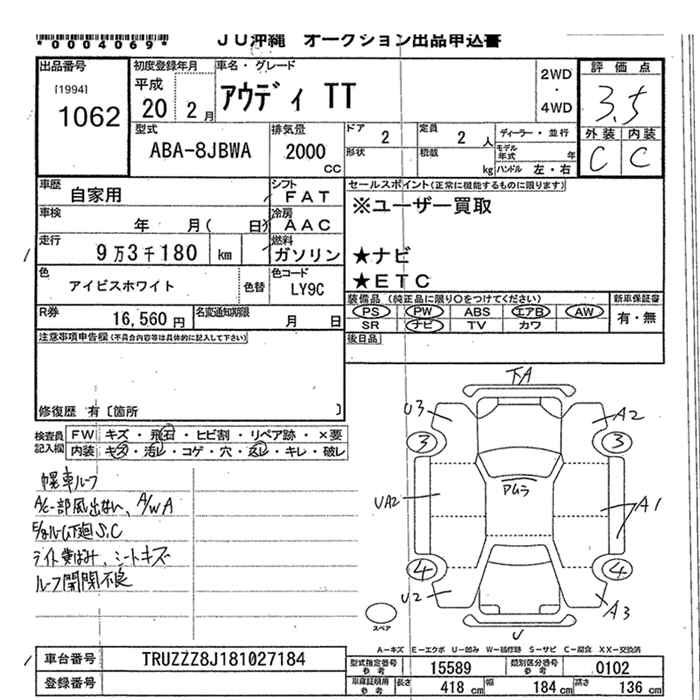 *0004069*
JU沖縄 オークション出品申込書
出品番号 [1994] 1062
初度登録年月 平成 20 2月
車名・グレード アウディ TT
2WD・4WD
評価点 3.5
外装 C 内装 C
型式 ABA-8JBWA
排気量 2000 CC
ドア 2 定員 2人 ディーラー・並行
形状 積載 kg モデル年式 年
ハンドル 左・右
車歴 自家用
シフト FAT
車検 年 月( 日)
冷房 AAC
走行 9万3千180 km
燃料 ガソリン
色 アイビスホワイト 色替
色コード LY9C
R券 16,560円 名変通知期限 月 日
セールスポイント(正常に機能するものに限ります)
※ユーザー買取
★ナビ
★ETC
装備品(純正品に限り○をつけてください) 新車保証書
PS PW ABS エアB AW 有・無
SR ナビ TV カワ
後日品
注意事項申告欄(不具合内容等は具体的に記入して下さい)
修復歴 有〔箇所 〕
検査員記入欄 FW キズ・飛石・ヒビ割・リペア跡・×要
内装 キズ・汚レ・コゲ・穴・スレ・キレ・破レ
幌車ルーフ
A/C一部風出ない、A/WA
E/gルーム下廻S,C
ライト黄ばみ、シートキズ
ルーフ開閉不良
TA
U3 A2
3 3
アムラ
UA2 A1
4 4
U2 A3
U
スペア
A-キズ E-エクボ U-凹み W-補修跡 S-サビ C-腐食 XX-交換済
車台番号 TRUZZZ8J181027184
登録番号
型式指定番号 参考 15589 類別区分番号 参考 0102
車庫証明用 参考 長さ 418 cm 幅 184 cm 高さ 136 cm